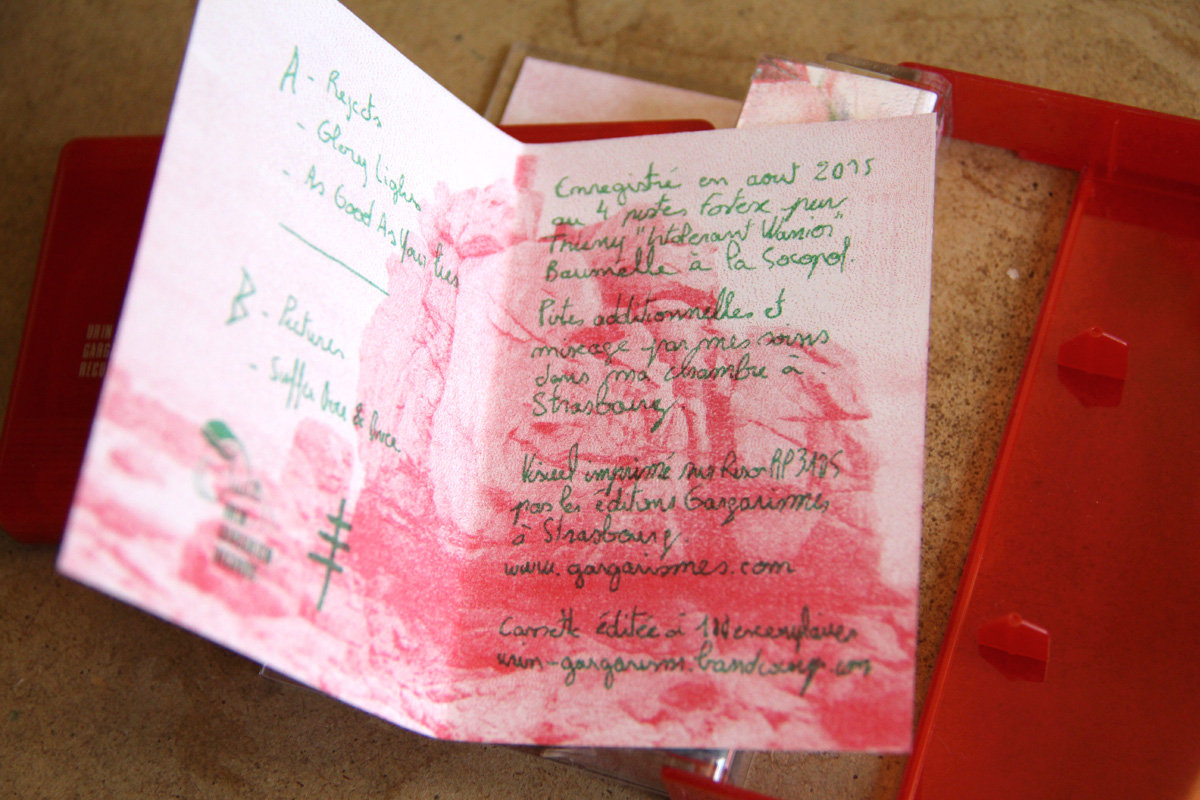 A - Rejects
- Glory Lights
- As Good As Your lies
B - Pictures
- Suffer Once & 
Enregistré en aout 2015
au 4 pistes Fostex par
Thierry "Intolerant Warrior"
Baumelle à la Socopof.
Pistes additionnelles et
mixage par mes soins
dans ma chambre à
Strasbourg.
Visuel imprimé sur Riso RP 3105
par les éditions Gargarismes
à Strasbourg.
www.gargarismes.com
Cassette éditée à 100 exemplaires
urin-gargarism.bandcamp.com
URIN
GARG
RECO